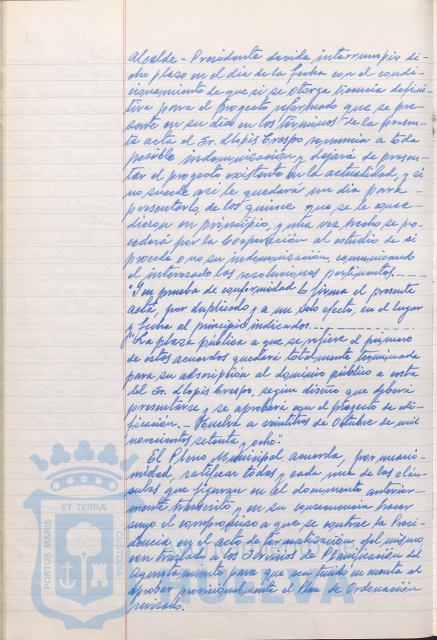 Alcalde-Presidente decide interrumpir di-
cho plazo en el dia de la fecha con el condi-
cionamiento de que si se otorga licencia defini-
tiva para el proyecto reformado que se pre-
sente en su dia en los términos de la presen-
te acta el Sr. Llopis Crespo renuncia a toda
posible indemnización y dejará de presen-
tar el proyecto existente en la actualidad, y si
no sucede así le quedará un dia para
presentarlo, de los quince que se le conce-
dieron en principio, y una vez hecho se pro-
cederá por la Corporación al estudio de si
procede o no su indemnización, comunicando
al interesado las resoluciones pertinentes.----
"Y en prueba de conformidad lo firma el presente
acta, por duplicado y a un solo efecto, en el lugar
y fecha al principio indicados.--------
"La plaza pública a que se refiere el primero
de estos acuerdos quedará totalmente terminada
para su adscripción al dominio público a costa
del Sr. Llopis Crespo, según diseño que deberá
presentarse y se aprobará con el proyecto de edi-
ficación.- Huelva a veintitres de Octubre de mil
novecientos setenta y ocho".
El Pleno Municipal acuerda, por unani-
midad, ratificar todas y cada una de las cláu-
sulas que figuran en el documento anterior-
mente transcrito y en su consecuencia hacer
suyo el compromiso a que se contrae la Presi-
dencia en el acto de formalización del mismo
con traslado a los Servicios de Planificación del
Ayuntamiento para que sea tenido en cuenta al
aprobar provisionalmente el Plan de Ordenación
revisado.
PORTUS MARIS
ET TERRAE
CUSTODIA
HUELVA